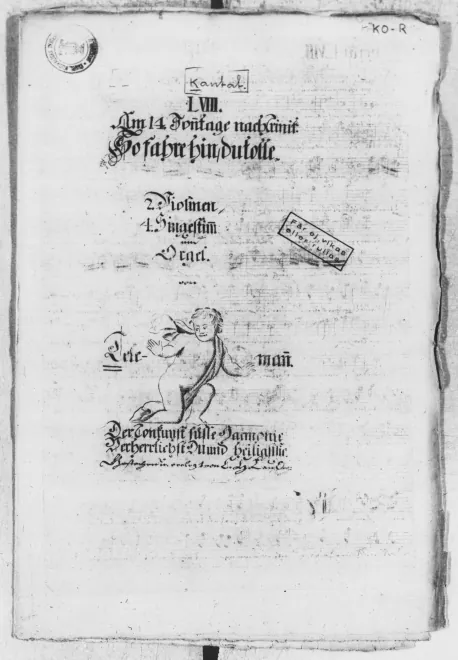 KO-R
Kantat.
LVIII.
Am 14. Sontage nach Trinit.
So fahre hin, du tolle.
2. Violinen,
4. Singestim̄
Orgel.
von
Får ej vikas
eller rullas
Tele- man̄.
Der Tonkunst süsse Harmonie
Verherrlichst Du und heiligst sie.